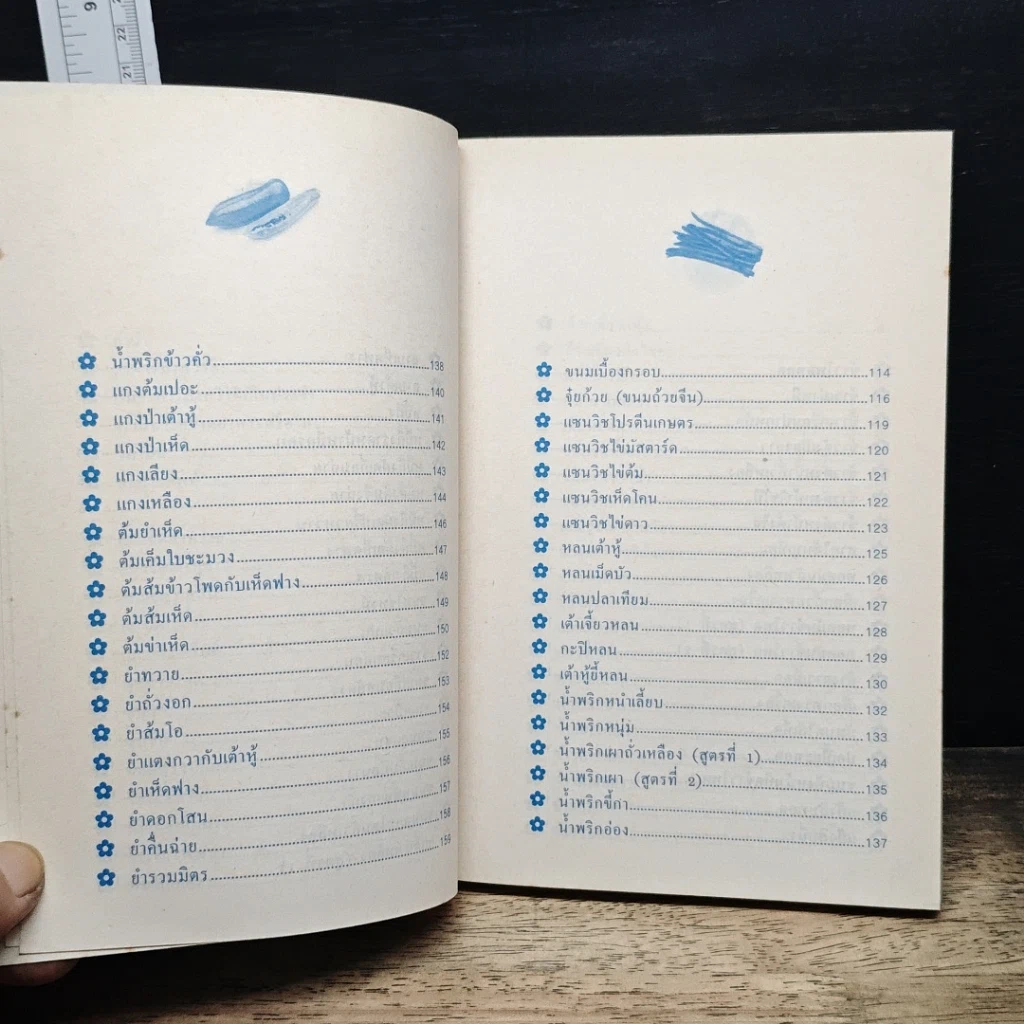 9
22
21
น้ำพริกข้าวคั่ว....................138
แกงต้มเปอะ....................140
แกงป่าเต้าหู้....................141
แกงป่าเห็ด....................142
แกงเลียง....................143
แกงเหลือง....................144
ต้มยำเห็ด....................146
ต้มเค็มใบชะมวง....................147
ต้มส้มข้าวโพดกับเห็ดฟาง....................148
ต้มส้มเห็ด....................149
ต้มข่าเห็ด....................150
ยำทวาย....................152
ยำถั่วงอก....................153
ยำส้มโอ....................154
ยำแตงกวากับเต้าหู้....................155
ยำเห็ดฟาง....................156
ยำดอกโสน....................157
ยำคื่นฉ่าย....................158
ยำรวมมิตร....................159
ขนมเบื้องกรอบ....................114
จุ๋ยก้วย (ขนมถ้วยจีน)....................116
แซนวิชโปรตีนเกษตร....................119
แซนวิชไข่มัสตาร์ด....................120
แซนวิชไข่ต้ม....................121
แซนวิชเห็ดโคน....................122
แซนวิชไข่ดาว....................123
หลนเต้าหู้....................125
หลนเม็ดบัว....................126
หลนปลาเทียม....................127
เต้าเจี้ยวหลน....................128
กะปิหลน....................129
เต้าหู้ยี้หลน....................130
น้ำพริกหนำเลี้ยบ....................132
น้ำพริกหนุ่ม....................133
น้ำพริกเผาถั่วเหลือง (สูตรที่ 1)....................134
น้ำพริกเผา (สูตรที่ 2)....................135
น้ำพริกขี้กา....................136
น้ำพริกอ่อง....................137